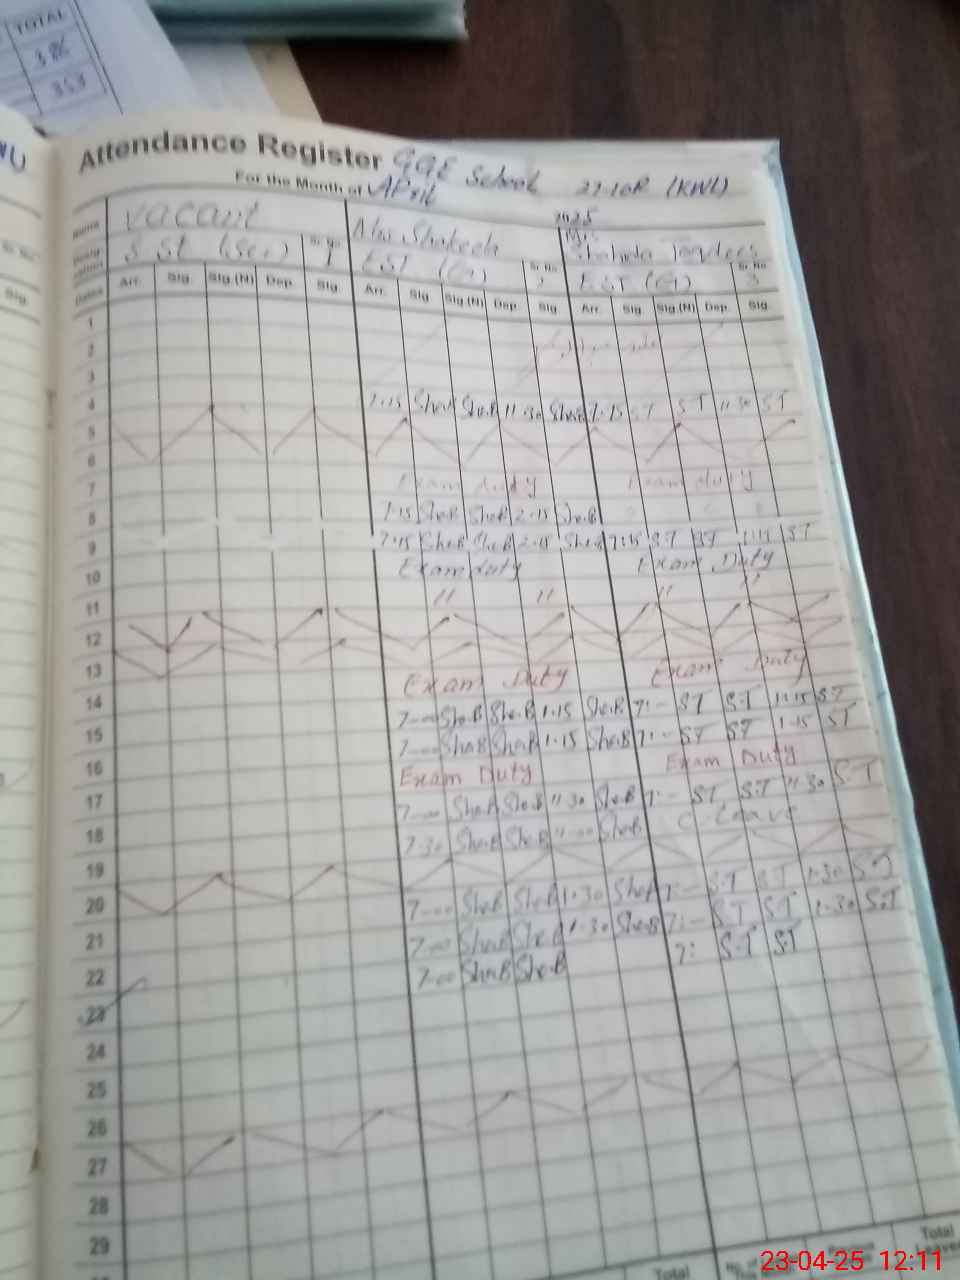 TOTAL
386
353
Attendance Register GGE School 27-10R (KWL)
For the Month of April 2025
Name vacant
SST (Sci) Sr. No 1 EST (G) Sr. No 2 EST (G) Sr. No 3
Dates Arr. Sig. Sig.(N) Dep. Sig. Arr. Sig. Sig.(N) Dep. Sig. Arr. Sig. Sig.(N) Dep. Sig.
1
2
3
4 7.15 She.B She.B 11.30 She.B 7.15 S.T S.T 11.30 S.T
5
6
7 Exam duty Exam duty
8 7.15 She.B She.B 2.15 She.B
9 7:15 She.B She.B 2.15 She.B 7:15 S.T S.T 1:15 S.T
10 Exam duty Exam Duty
11 " " " "
12
13
14 Exam Duty Exam Duty
15 7-00 She.B She.B 1.15 She.B 7:- S.T S.T 1.15 S.T
16 7-00 She.B She.B 1.15 She.B 7:- S.T S.T 1.15 S.T
17 Exam Duty Exam Duty
18 7-00 She.B She.B 11.30 She.B 7:- S.T S.T 11.30 S.T
19 7-30 She.B She.B 11-00 She.B C. Leave
20
21 7-00 She.B She.B 1.30 She.B 7:- S.T S.T 1.30 S.T
22 7-00 She.B She.B 1.30 She.B 7:- S.T S.T 1.30 S.T
23 7-00 She.B She.B 7: S.T S.T
24
25
26
27
28
29
Total
Total
23-04-25 12:11